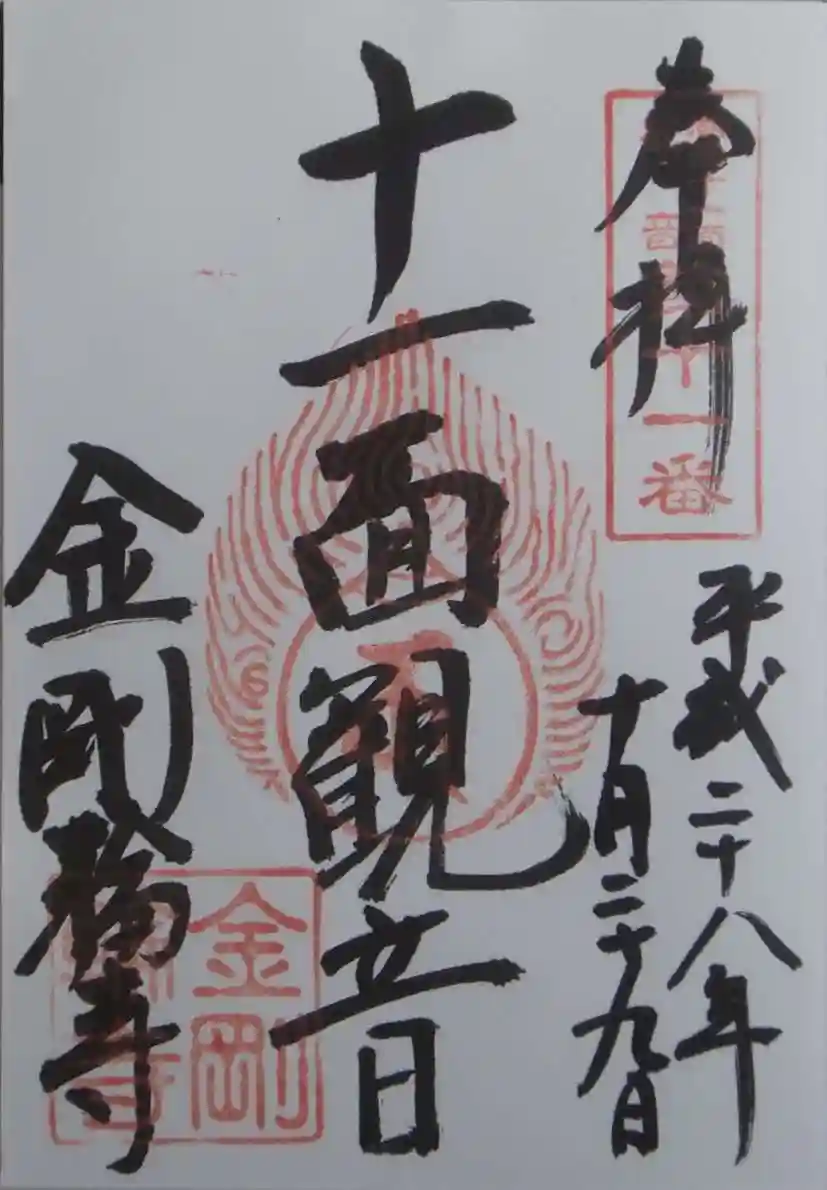 奉拝
十一番
平成二十八年
十月二十九日
十一面観音
金剛輪寺
金剛